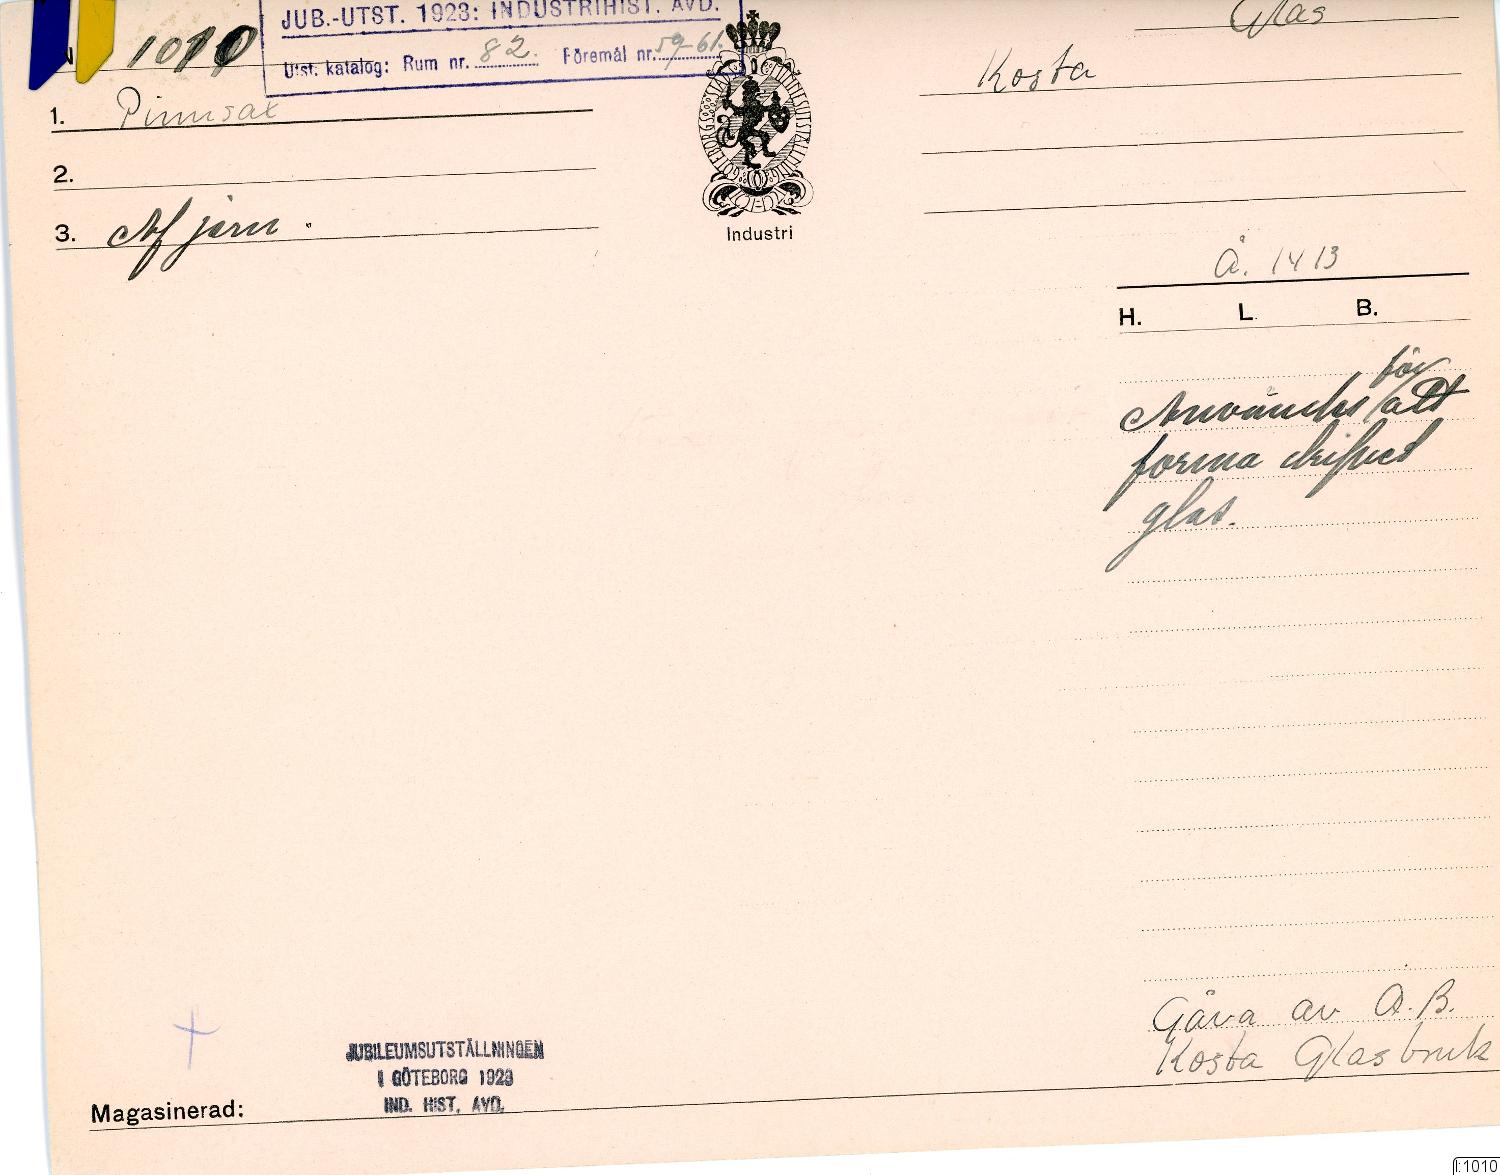 JUB.-UTST. 1923: INDUSTRIHIST. AVD.
Utst. katalog: Rum nr. 82. Föremål nr. 59-61.
N 1010
Glas
Kosta
1. Pinnsax
2.
3. Af järn.
GÖTEBORGS STADS MINNESUTSTÄLLNING
Industri
Å. 1413
H. L. B.
för
Användes att
forma
glas.
Gåva av A.B.
Kosta Glasbruk
JUBILEUMSUTSTÄLLNINGEN
I GÖTEBORG 1923
IND. HIST. AVD.
Magasinerad:
I:1010